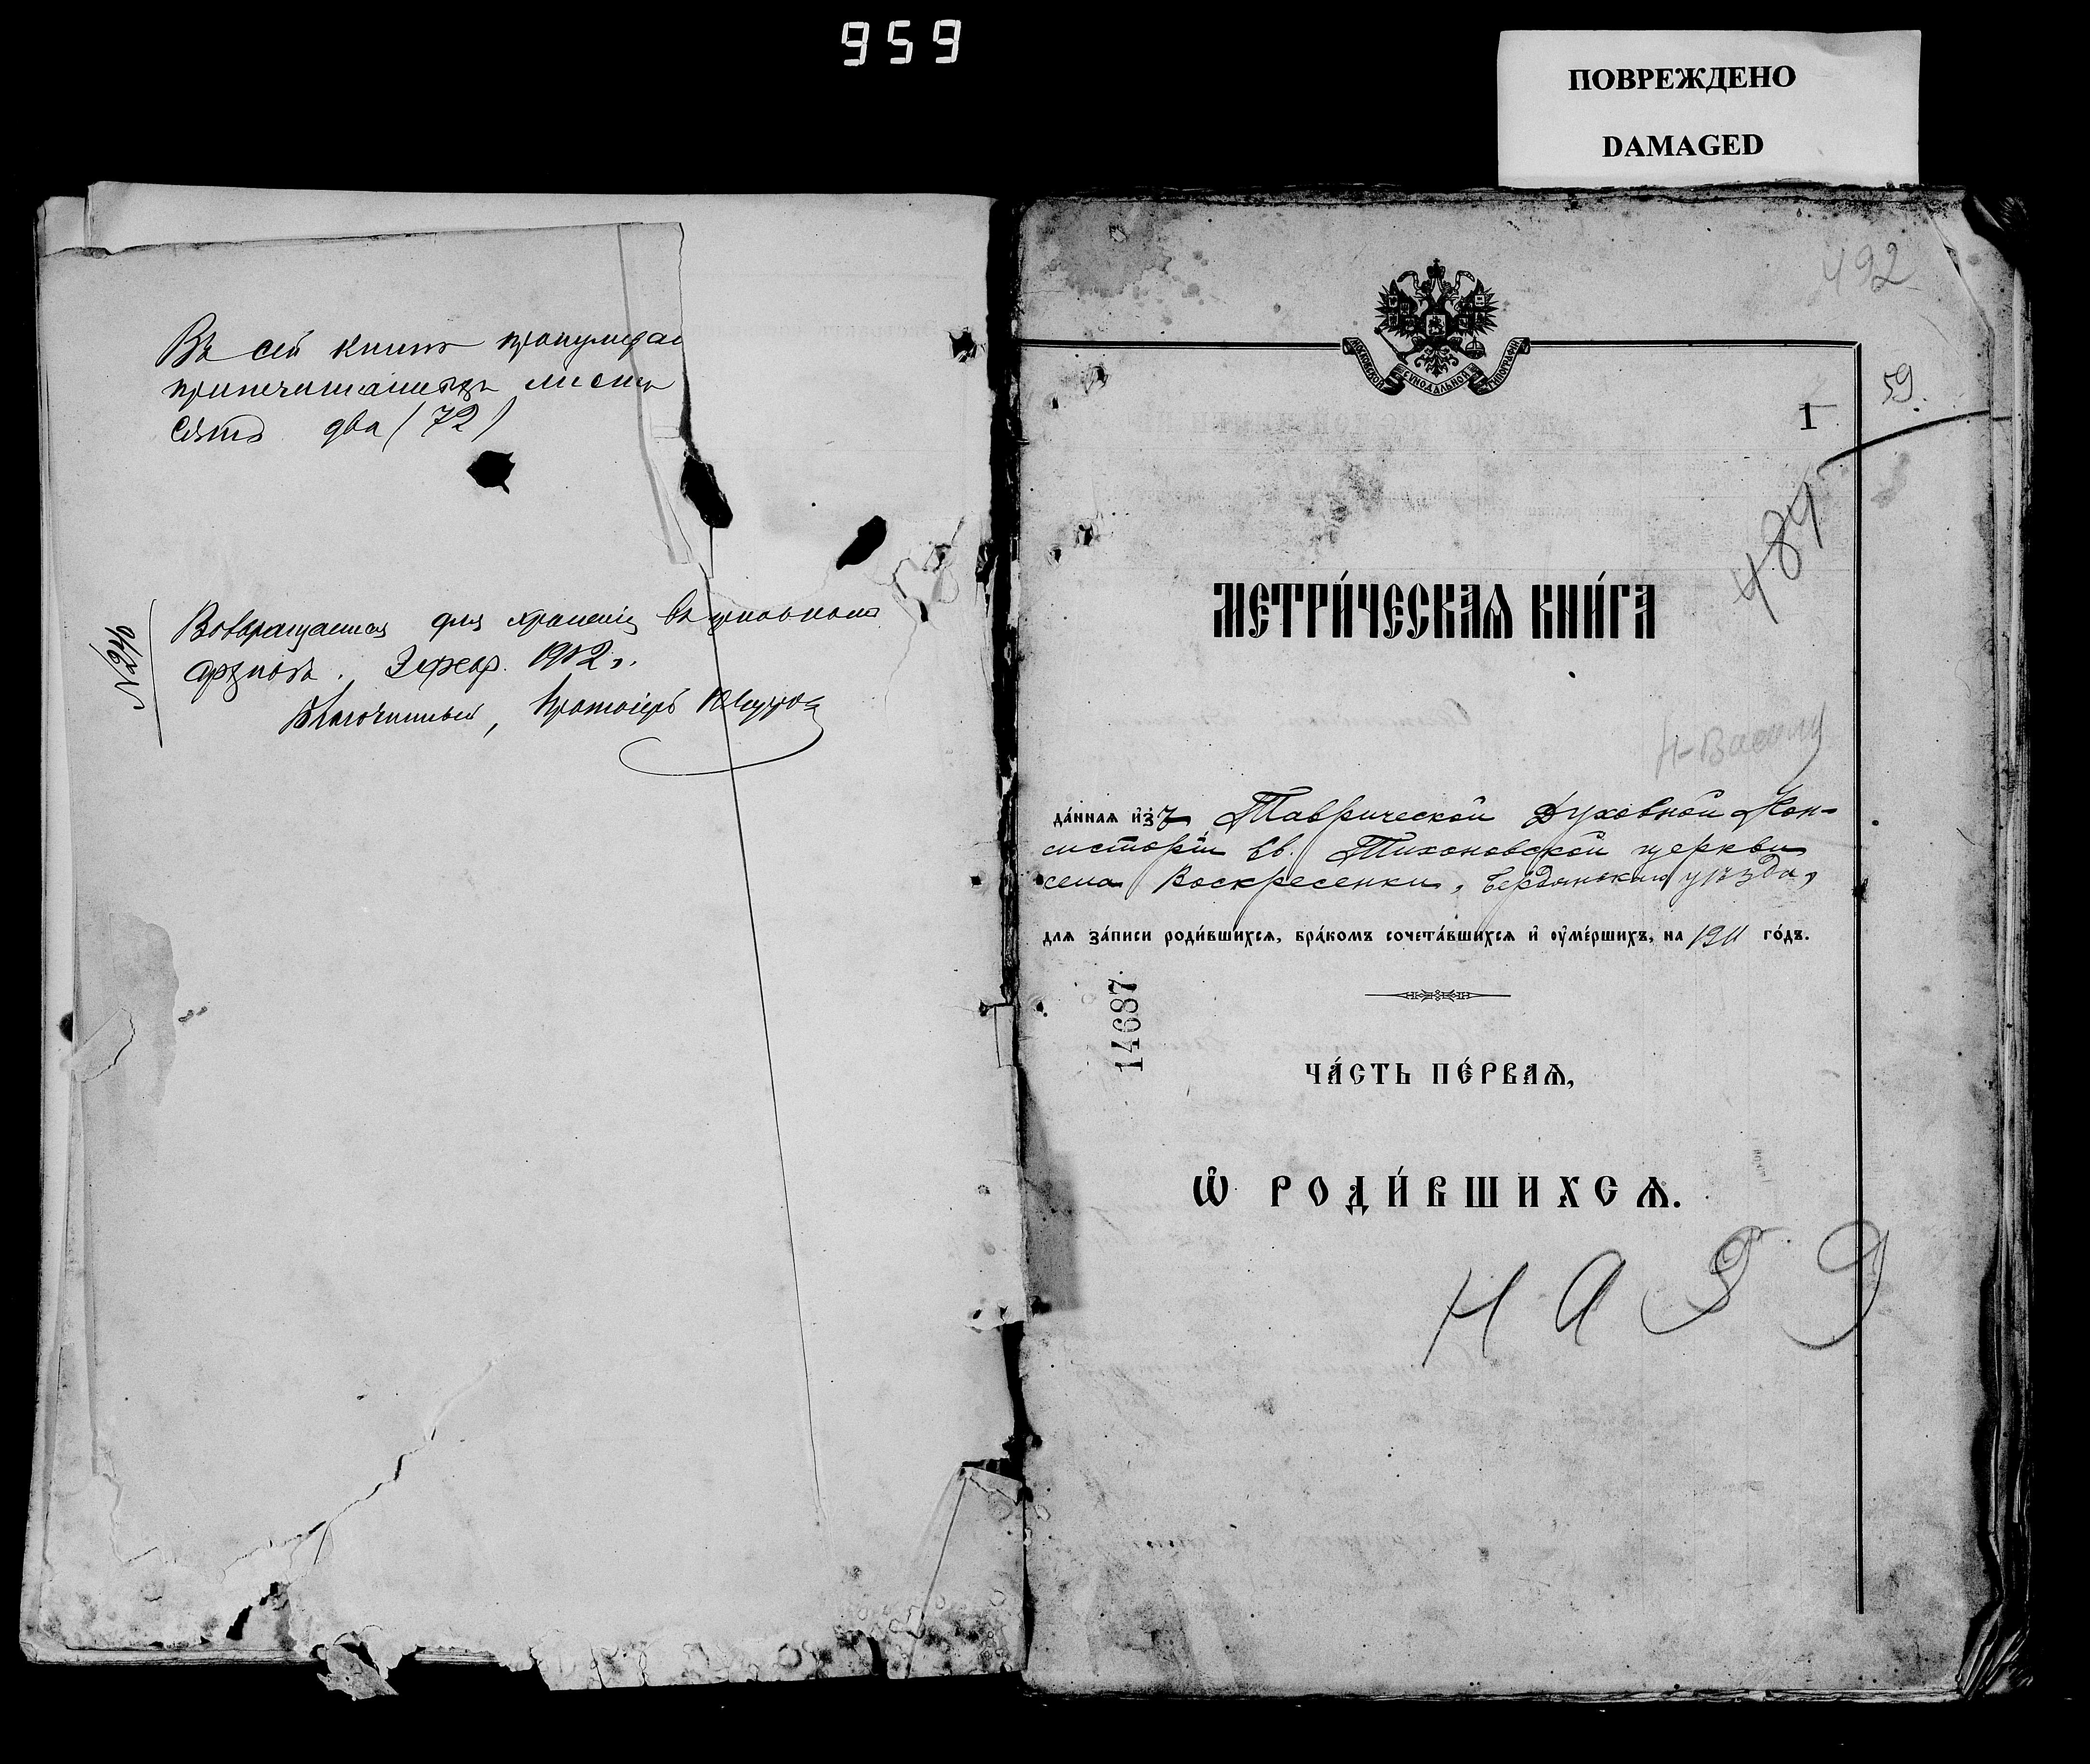 959
ПОВРЕЖДЕНО
DAMAGED
Въ сей книгѣ пронумеров
припечатанныхъ листовъ
сятъ два (72)
№ 26
Возвращается для храненія въ церковномъ
архивѣ. 3 февр. 1912 г.
Благочинный, Протоіерей
492
МОСКОВСКОЙ СѴНОДАЛЬНОЙ ТИПОГРАФІИ
59.
1
487
МЕТРИ́ЧЕСКАѦ КНИ́ГА
Н-Васил
да́ннаѧ и҆зъ Таврической Духовной Кон-
систоріи Св. Тихоновской церкви
села Воскресенки, Бердянскаго уѣзда,
длѧ за́писи роди́вшихсѧ, бра́комъ сочета́вшихсѧ и҆ оу҆ме́ршихъ, на 1911 го́дъ.
14687
ЧА́СТЬ ПЕ́РВАѦ,
Ѽ РОДИ́ВШИХСѦ.